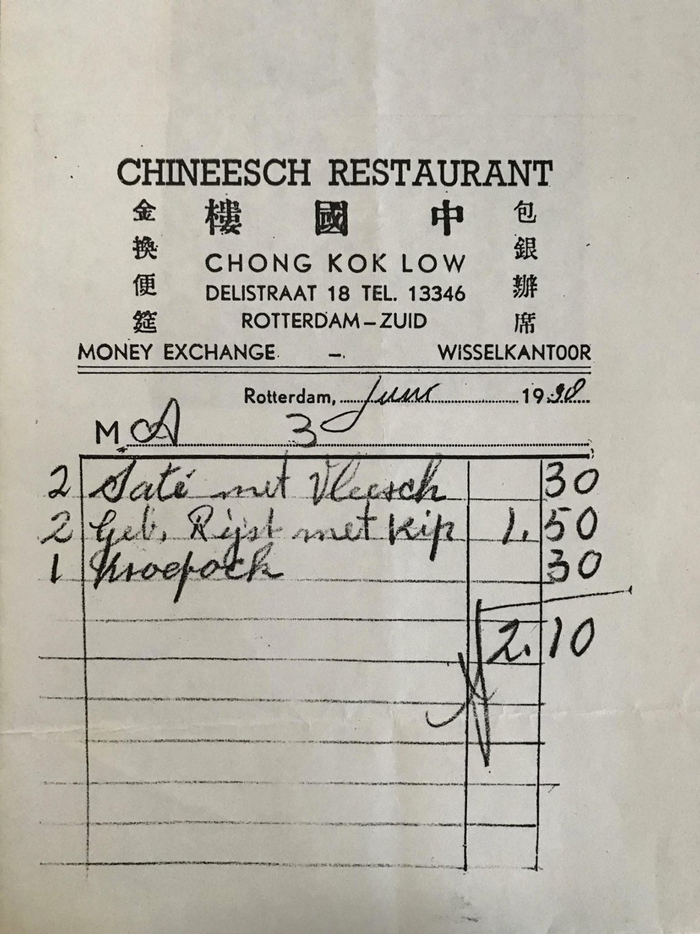 CHINEESCH RESTAURANT
樓 國 中
金換便筵
包銀辦席
CHONG KOK LOW
DELISTRAAT 18 TEL. 13346
ROTTERDAM–ZUID
MONEY EXCHANGE –. WISSELKANTOOR
Rotterdam, Juni 1938
M A 3
2 Saté met Vleesch 30
2 Geb. Rijst met Kip 1.50
1 Kroepock 30
2.10